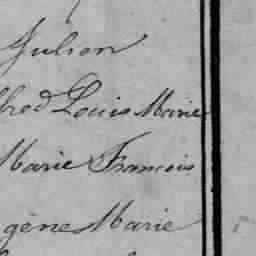 Julien
fred Louis Marie
Marie François
gène Marie